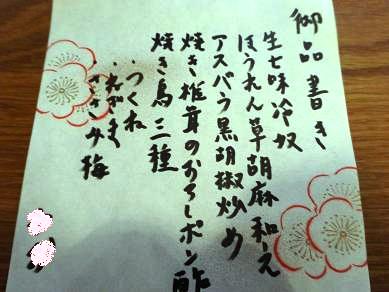 御品書き
生七味冷奴
ほうれん草胡麻和え
アスパラ黒胡椒炒め
焼き椎茸のおろしポン酢
焼き鳥三種
・つくね
・ねぎま
・ささみ梅